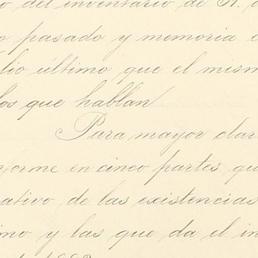 o del inventario de
o pasado y memoria
lio último que el mism
los que hablan
Para mayor clar
forme en cinco partes qu
ativo de las existencias
imo y las que da el in